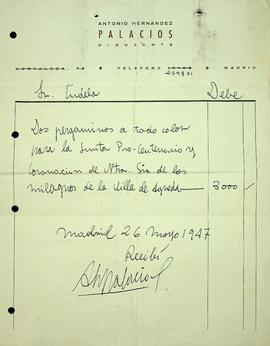 ANTONIO HERNANDEZ
PALACIOS
DIBUJANTE
HORTALEZA, • TELEFONO • MADRID
Sr. Tudela Debe
Dos pergaminos a todo color
para la Junta Pro-Centenario y
Coronacion de Ntra. Sra. de los
milagros de la Villa de Agreda 3000
Madrid 26 Mayo 1947
Recibí
AHPalacios